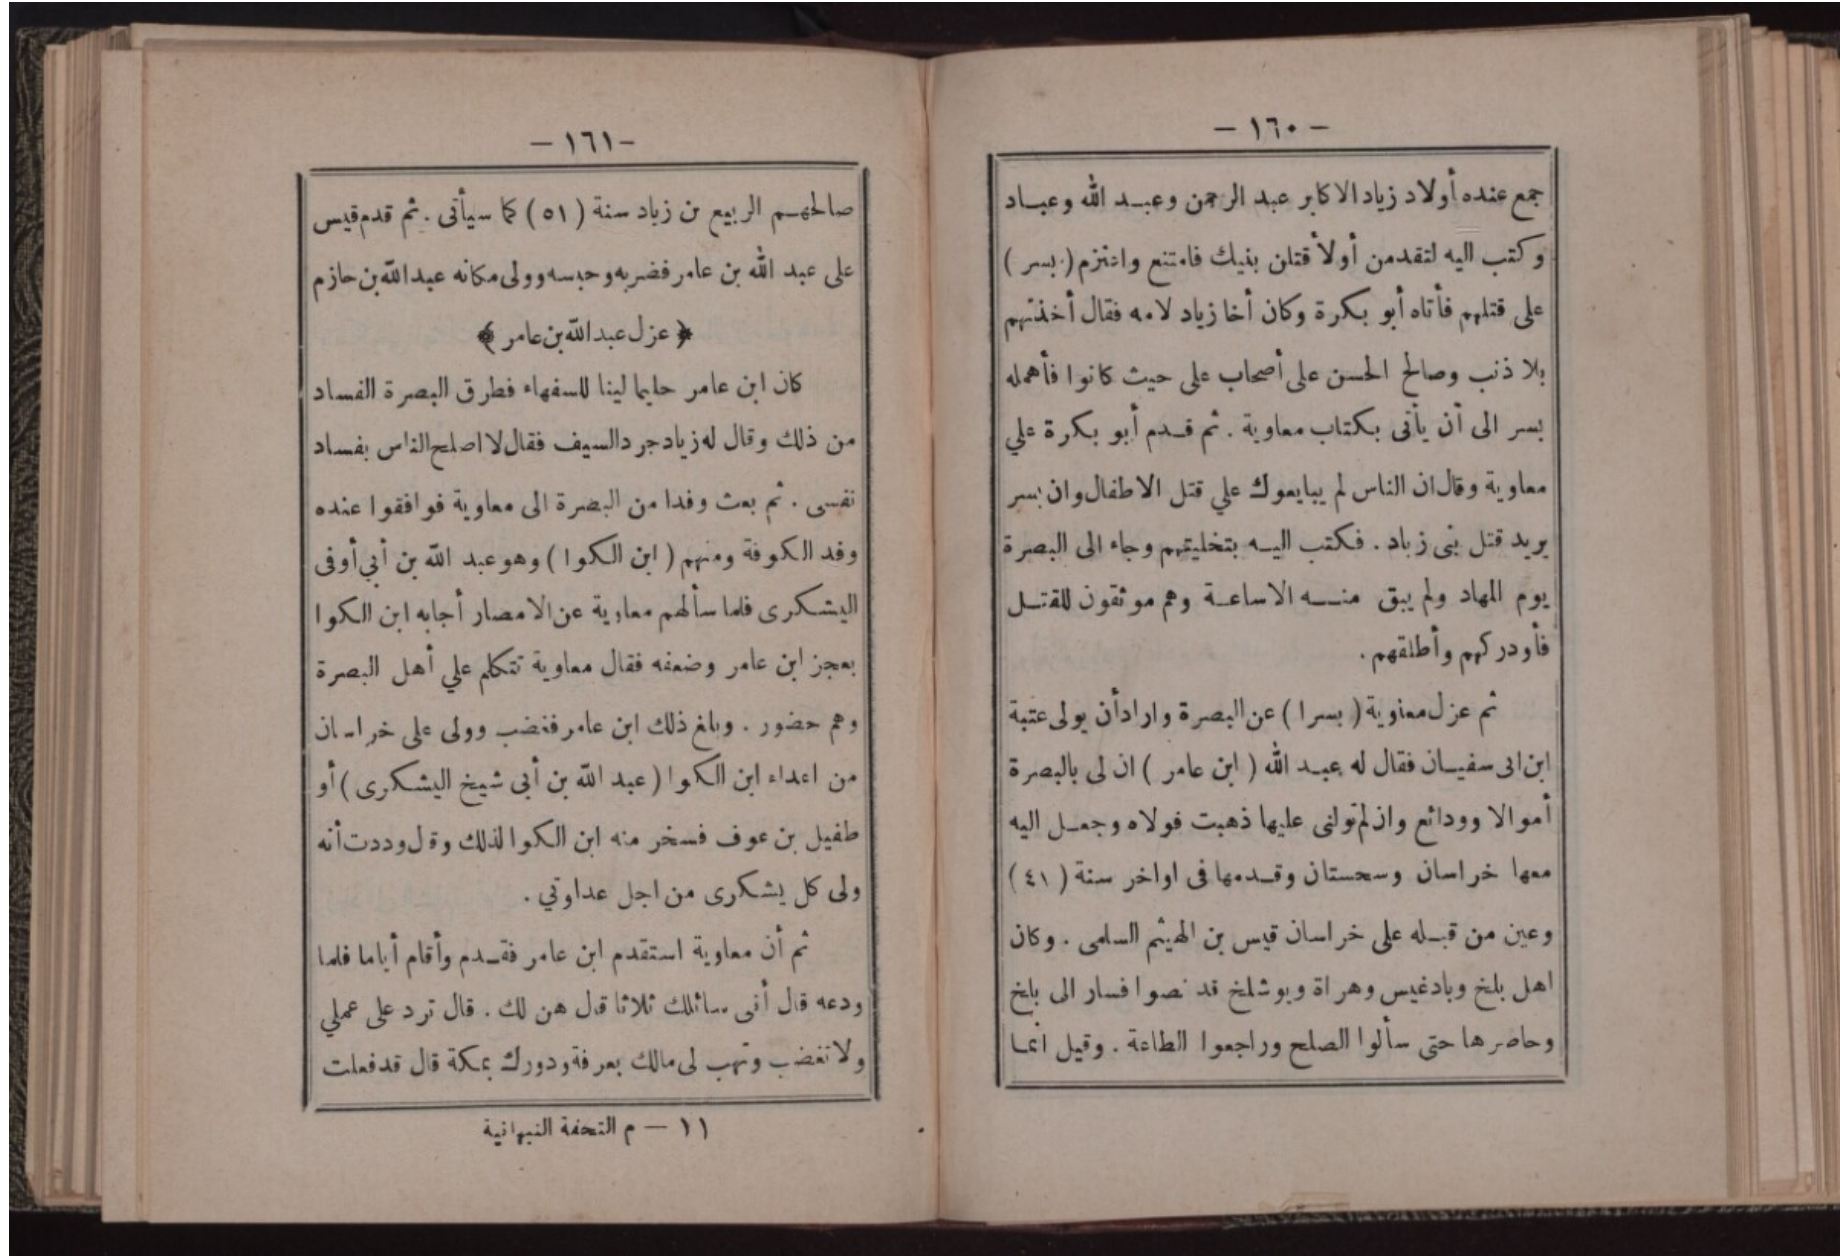 — ١٦٠ —
جمع عنده أولاد زياد الاكابر عبد الرحمن وعبد الله وعباد
وكتب اليه لتقدمن أولأ قتلن بنيك فامتنع واعتزم ( بسر )
على قتلهم فأتاه أبو بكرة وكان أخا زياد لامه فقال أخذتهم
بلا ذنب وصالح الحسن على أصحاب على حيث كانوا فأهمله
بسر الى أن يأتى بكتاب معاوية . ثم قدم أبو بكرة علي
معاوية وقال ان الناس لم يبايعوك علي قتل الاطفال وان بسر
يريد قتل بنى زياد . فكتب اليه بتخليتهم وجاء الى البصرة
يوم المهاد ولم يبق منه الاساعة وهم موثقون للقتل
فأودركهم وأطلقهم .
ثم عزل معاوية ( بسرا ) عن البصرة وارادأن يولى عتبة
ابن ابى سفيان فقال له عبد الله ( ابن عامر ) ان لى بالبصرة
أموالا وودائع وان لم تولنى عليها ذهبت فولاه وجعل اليه
معها خراسان وسحستان وقدمها فى اواخر سنة ( ٤١ )
وعين من قبله على خراسان قيس بن الهيثم السلمى . وكان
اهل بلخ وبادغيس وهراة وبوشلخ قد نصوا فسار الى بلخ
وحاصرها حتى سألوا الصلح وراجعوا الطاعة . وقيل انما
— ١٦١ —
صالحهم الربيع بن زياد سنة ( ٥١ ) كما سيأتى . ثم قدم قيس
على عبد الله بن عامر فضربه وحبسه وولى مكانه عبد الله بن حازم
﴿ عزل عبد الله بن عامر ﴾
كان ابن عامر حليما لينا للسفهاء فطرق البصرة الفساد
من ذلك وقال له زياد جرد السيف فقال لا اصلح الناس بفساد
نفسى . ثم بعث وفدا من البصرة الى معاوية فوافقوا عنده
وفد الكوفة ومنهم ( ابن الكوا ) وهو عبد الله بن أبي أوفى
اليشكرى فلما سألهم معاوية عن الامصار أجابه ابن الكوا
بعجز ابن عامر وضعفه فقال معاوية تتكلم علي أهل البصرة
وهم حضور . وبلغ ذلك ابن عامر فغضب وولى على خراسان
من اعداء ابن الكوا ( عبد الله بن أبى شيخ اليشكرى ) أو
طفيل بن عوف فسخر منه ابن الكوا لذلك وقال وددت أنه
ولى كل يشكرى من اجل عداوتي .
ثم أن معاوية استقدم ابن عامر فقدم وأقام أياما فلما
ودعه قال أنى سائلك ثلاثا قال هن لك . قال ترد على عملي
ولا تغضب وتهب لى مالك بعرفة ودورك بمكة قال قد فعلت
١١ — م التحفة النبهانية